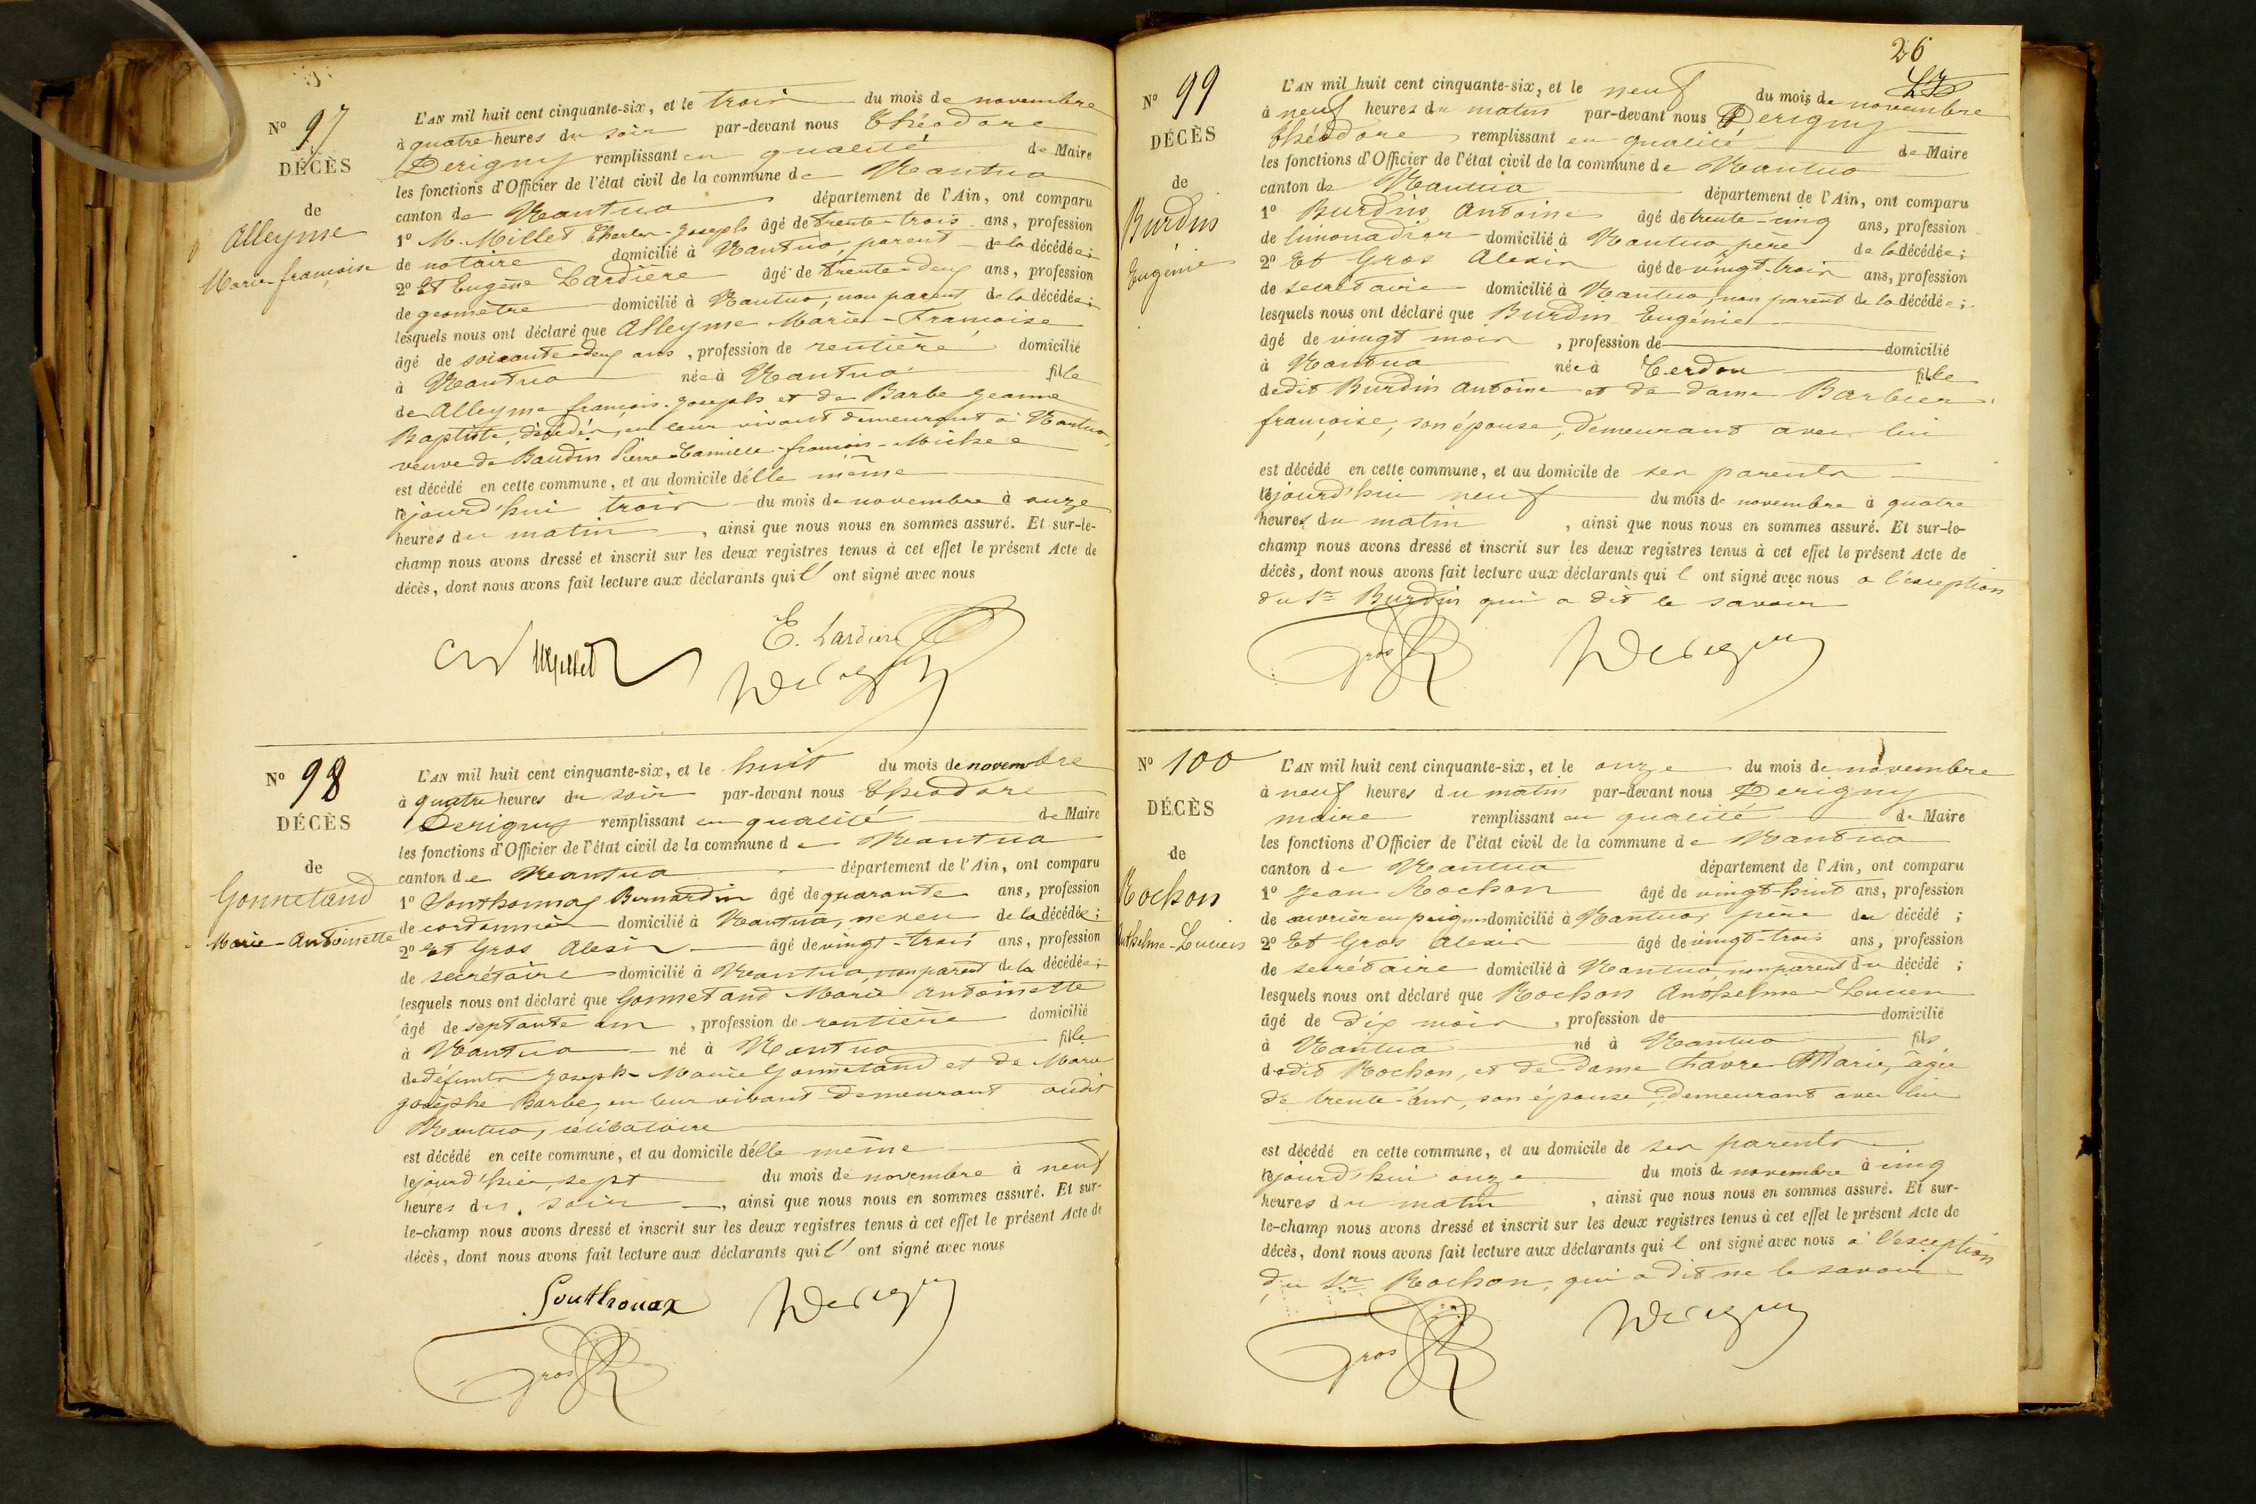 Nº 97
DÉCÈS
de
Alleyme
Marie-françoise
L'AN mil huit cent cinquante-six, et le trois du mois de novembre
à quatre heures du soir par-devant nous Théodore
Derigny remplissant en qualité de Maire
les fonctions d'Officier de l'état civil de la commune de Nantua
canton de Nantua département de l'Ain, ont comparu
1º M. Millet Charles-Joseph âgé de trente-trois ans, profession
de notaire domicilié à Nantua, parent de la décédée;
2º Et Eugène Lardière âgé de trente-deux ans, profession
de geomètre domicilié à Nantua, non parent de la décédée;
lesquels nous ont déclaré que Alleyme Marie-Françoise
âgé de soixante-deux ans, profession de rentière domicilié
à Nantua née à Nantua fille
de Alleyme françois-Joseph et de Barbe Jeanne
Baptiste, décédés, en leur vivant demeurant à Nantua,
veuve de Baudin Pierre-Camille-françois-Michel
est décédé en cette commune, et au domicile d'elle même
le jourd'hui trois du mois de novembre à onze
heures du matin, ainsi que nous nous en sommes assuré. Et sur-le-
champ nous avons dressé et inscrit sur les deux registres tenus à cet effet le présent Acte de
décès, dont nous avons fait lecture aux déclarants qui l' ont signé avec nous
Millet
E. Lardière
Derigny
Nº 98
DÉCÈS
de
Gonnetand
Marie-Antoinette
L'AN mil huit cent cinquante-six, et le huit du mois de novembre
à quatre heures du soir par-devant nous Théodore
Derigny remplissant en qualité de Maire
les fonctions d'Officier de l'état civil de la commune de Nantua
canton de Nantua département de l'Ain, ont comparu
1º Southonnax Bernardin âgé de quarante ans, profession
de cordonnier domicilié à Nantua, neveu de la décédée;
2º Et Gros Alexis âgé de vingt-trois ans, profession
de secrétaire domicilié à Nantua non parent de la décédée;
lesquels nous ont déclaré que Gonnetand Marie Antoinette
âgé de septante ans, profession de rentière domicilié
à Nantua né à Nantua fille
de défunts Joseph-Marie Gonnetand et de Marie
Josephe Barbe, en leur vivant demeurant audit
Nantua, célibataire
est décédé en cette commune, et au domicile d'elle même
le jourd'hier, sept du mois de novembre à neuf
heures du soir, ainsi que nous nous en sommes assuré. Et sur-
le-champ nous avons dressé et inscrit sur les deux registres tenus à cet effet le présent Acte de
décès, dont nous avons fait lecture aux déclarants qui l' ont signé avec nous
Southonax
Derigny
Gros
26
Nº 99
DÉCÈS
de
Burdin
Eugénie
L'AN mil huit cent cinquante-six, et le neuf du mois de novembre
à neuf heures du matin par-devant nous Derigny
Théodore remplissant en qualité de Maire
les fonctions d'Officier de l'état civil de la commune de Nantua
canton de Nantua département de l'Ain, ont comparu
1º Burdin Antoine âgé de trente-cinq ans, profession
de limonadier domicilié à Nantua père de la décédée;
2º Et Gros Alexis âgé de vingt-trois ans, profession
de secrétaire domicilié à Nantua, non parent de la décédée;
lesquels nous ont déclaré que Burdin Eugénie
âgé de vingt mois, profession de domicilié
à Nantua née à Cerdon fille
dudit Burdin Antoine et de dame Barbier
françoise, son épouse, demeurant avec lui
est décédé en cette commune, et au domicile de ses parents
le jourd'hui neuf du mois de novembre à quatre
heures du matin, ainsi que nous nous en sommes assuré. Et sur-le-
champ nous avons dressé et inscrit sur les deux registres tenus à cet effet le présent Acte de
décès, dont nous avons fait lecture aux déclarants qui l ont signé avec nous a l'exception
du Sr Burdin qui a dit le savoir
Gros
Derigny
Nº 100
DÉCÈS
de
Rochon
Anthelme-Lucien
L'AN mil huit cent cinquante-six, et le onze du mois de novembre
à neuf heures du matin par-devant nous Derigny
maire remplissant en qualité de Maire
les fonctions d'Officier de l'état civil de la commune de Nantua
canton de Nantua département de l'Ain, ont comparu
1º Jean Rochon âgé de vingt-huit ans, profession
de ouvrier en peignes domicilié à Nantua, père du décédé;
2º Et Gros Alexis âgé de vingt-trois ans, profession
de secrétaire domicilié à Nantua, non parent du décédé;
lesquels nous ont déclaré que Rochon Anthelme-Lucien
âgé de dix mois, profession de domicilié
à Nantua né à Nantua fils
dudit Rochon, et de Dame Favre Marie, âgée
de trente-ans, son épouse, demeurant avec lui
est décédé en cette commune, et au domicile de ses parents
le jourd'hui onze du mois de novembre à cinq
heures du matin, ainsi que nous nous en sommes assuré. Et sur-
le-champ nous avons dressé et inscrit sur les deux registres tenus à cet effet le présent Acte de
décès, dont nous avons fait lecture aux déclarants qui l ont signé avec nous a l'exception
du Sr Rochon, qui a dit ne le savoir
Gros
Derigny